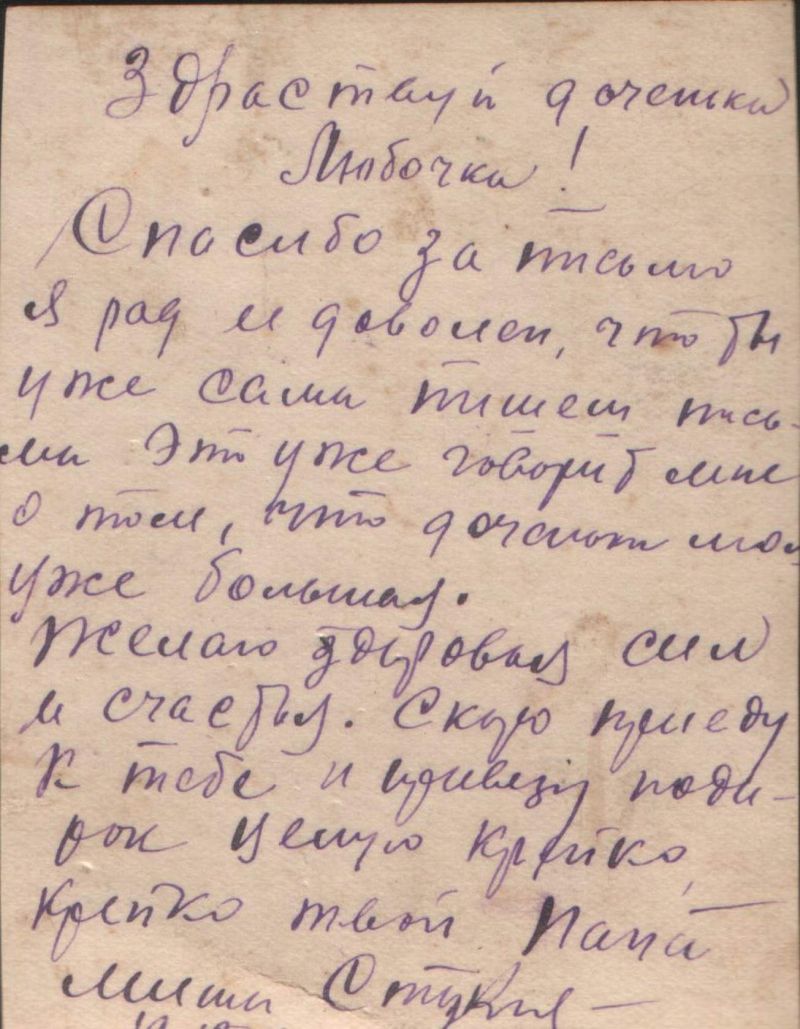 Здраствуй доченька
Любочка!
Спасибо за письмо
я рад и доволен, что ты
уже сама пишеш пись-
ма Это уже говорит мне
о том, что доченька моя
уже большая.
Желаю здоровья сил
и счастья. Скоро приеду
к тебе и привезу пода-
рок Целую крепко,
крепко твой папа
Миша